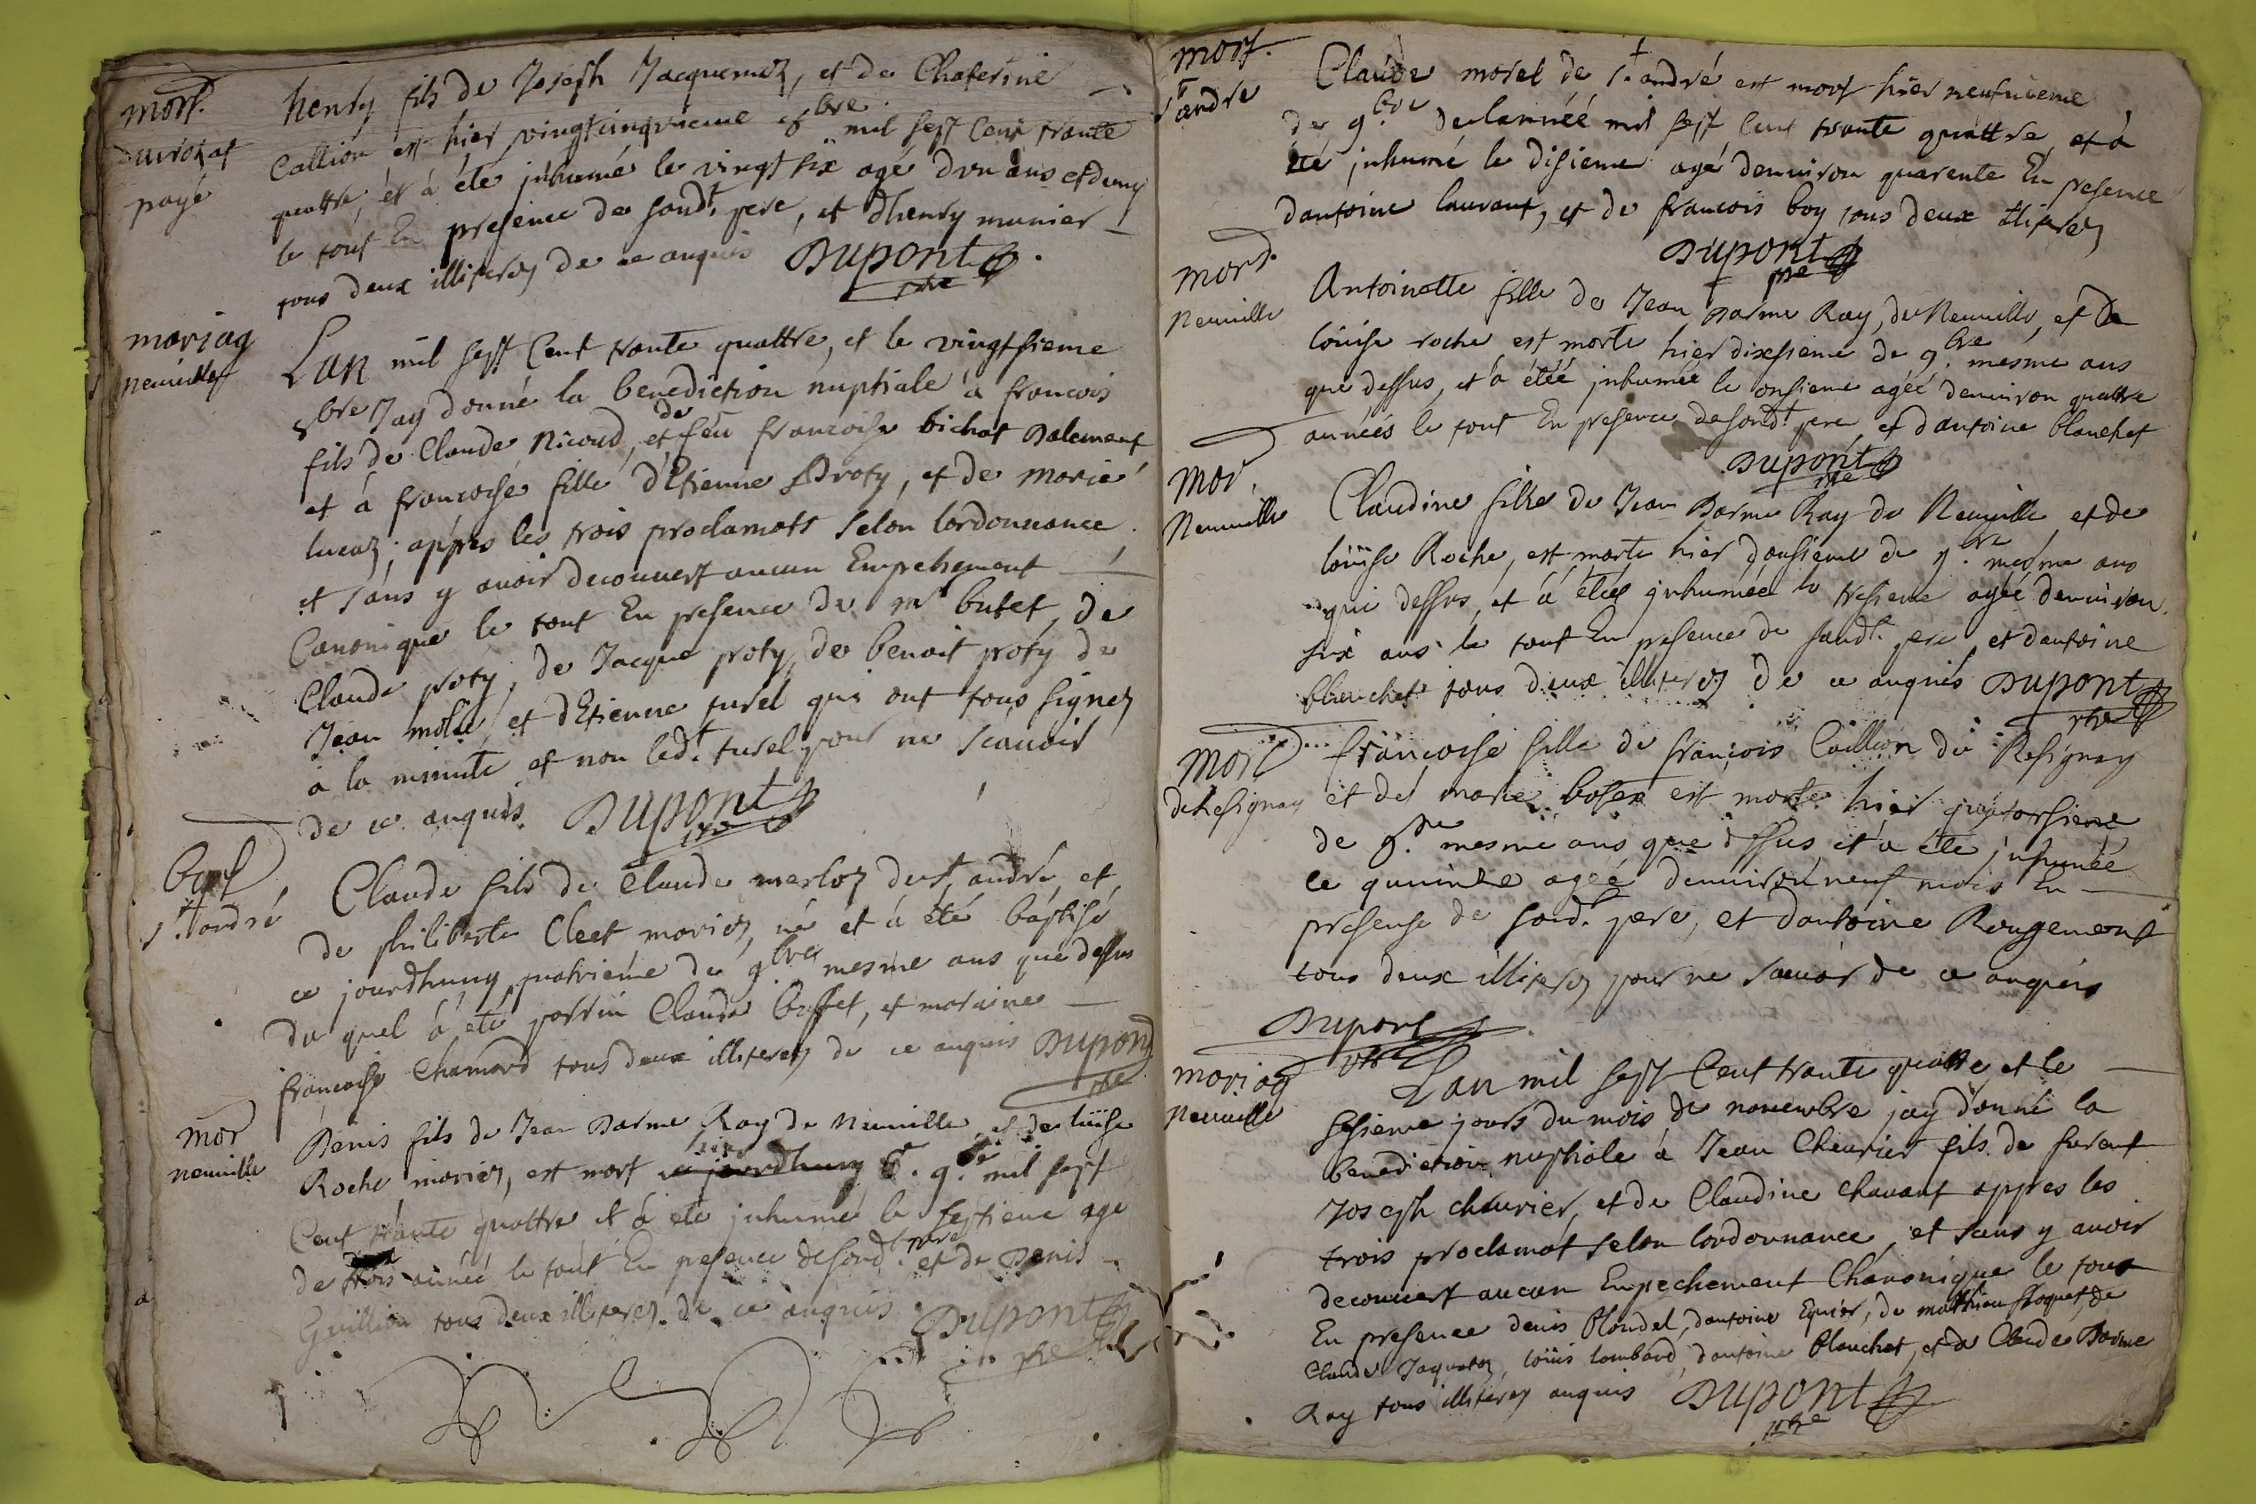 mort.
durozat
payé
henry fils de Joseph Jacquemoz, et de Chaterine
Callion est hier vingtcinqvieme 8bre mil sept cent trante
quattre, et à éte jnhumé le vingt six agé dun ans et demy
le tout En presence de sondt. pere, et dhenry munier
tous deux illiterez de ce anquis Dupont
ptre
mariag
neuville
Lan mil sept Cent trante quattre, et le vingtsieme
8bre Jay donné la benediction nuptiale à francois
fils de Claude Nicoud, et de feu francoise bichat Dalemant
et à francoise fille d'Etienne Proty, et de marie
lucaz; appres les trois proclamats selon lordonnance
et sans y avoir decouvert aucun Empechement
Canonique le tout En presence de mr butet, de
Claude proty, de Jacque proty, de benoit proty de
Jean molie, et dEtienne turel qui ont tous signez
a la minute et non ledt. turel pour ne scavoir
de ce anquis. Dupont
ptre
bapt
St. andré
Claude fils de Claude merloz de st. andré, et
de philiberte Cleet mariez, né et à été baptisé
ce jourdhuy quatrieme de 9bre mesme ans que dessus
du quel à éte parrin Claude buffet, et maraine
francoise Chamard tous deux illiterez de ce anquis Dupond
ptre
mor
neuville
Denis fils de Jean Darme Ray de neuville, et de luise
Roche mariez, est mort hier ce jourdhuy 6e. 9bre. mil sept
Cent trante quattre et à éte jnhumé le septieme age
de trois année le tout En presence de sondt. pere et de Denis
Guillion tous deux illiterez de ce anquis Dupont
ptre
mort.
st andre
Claude morel de st. andré est mort hier neufvieme
de 9bre de lannéé mil sept cent trante quattre, et à
été jnhumé le disieme agé denviron quarente En presence
dantoine laurant, et de francois boy tous deux illiterez
Dupont
ptre
mort.
Neuville
Antoinette fille de Jean Darme Ray, de Neuville, et de
loüise roche est morte hier dixsieme de 9bre. mesme ans
que dessus, et à étéé jnhumée le onsieme agéé denviron quattre
annéés le tout En presence de sondt. pere, et dantoine blanchet
Dupont
ptre
mor.
Neuville
Claudine fille de Jean Darme Ray de Neuville et de
loüise Roche, est morte hier dousieme de 9bre. mesme ans
que dessus, et à étéé jnhumée le tresieme agéé denviron
six ans le tout En presence de sondt. pere et dantoine
blanchet tous deux illiterez de ce anquis Dupont
ptre
mort
de Resignay
francoise fille de françois Caillion de Resignay
et de marie bosex est morte hier quatorsieme
de 9bre. mesme ans que dessus et à éte jnhuméé
le quinze agéé denviron neuf mois En
presense de sondt. pere, et dantoine Rougemont
tous deux illiterez pour ne scavoir de ce anquis
Dupont
ptre
mariag
Neuville
Lan mil sept Cent trante quattre, et le
sesieme jours du mois de novembre jay donné la
benediction nuptiale à Jean Chevrier fils de furent
Joseph chevrier, et de Claudine Chavant appres les
trois proclamat selon lordonnance, et sans y avoir
decouvert aucun Empechement Chanonique le tout
En presence denis blondel, dantoine Equier, de matthieu floquet, de
Claude Jaquetoz, loüis lombard, dantoine blanchet, et de Claude Darme
Ray tous illiterez anquis Dupont
ptre